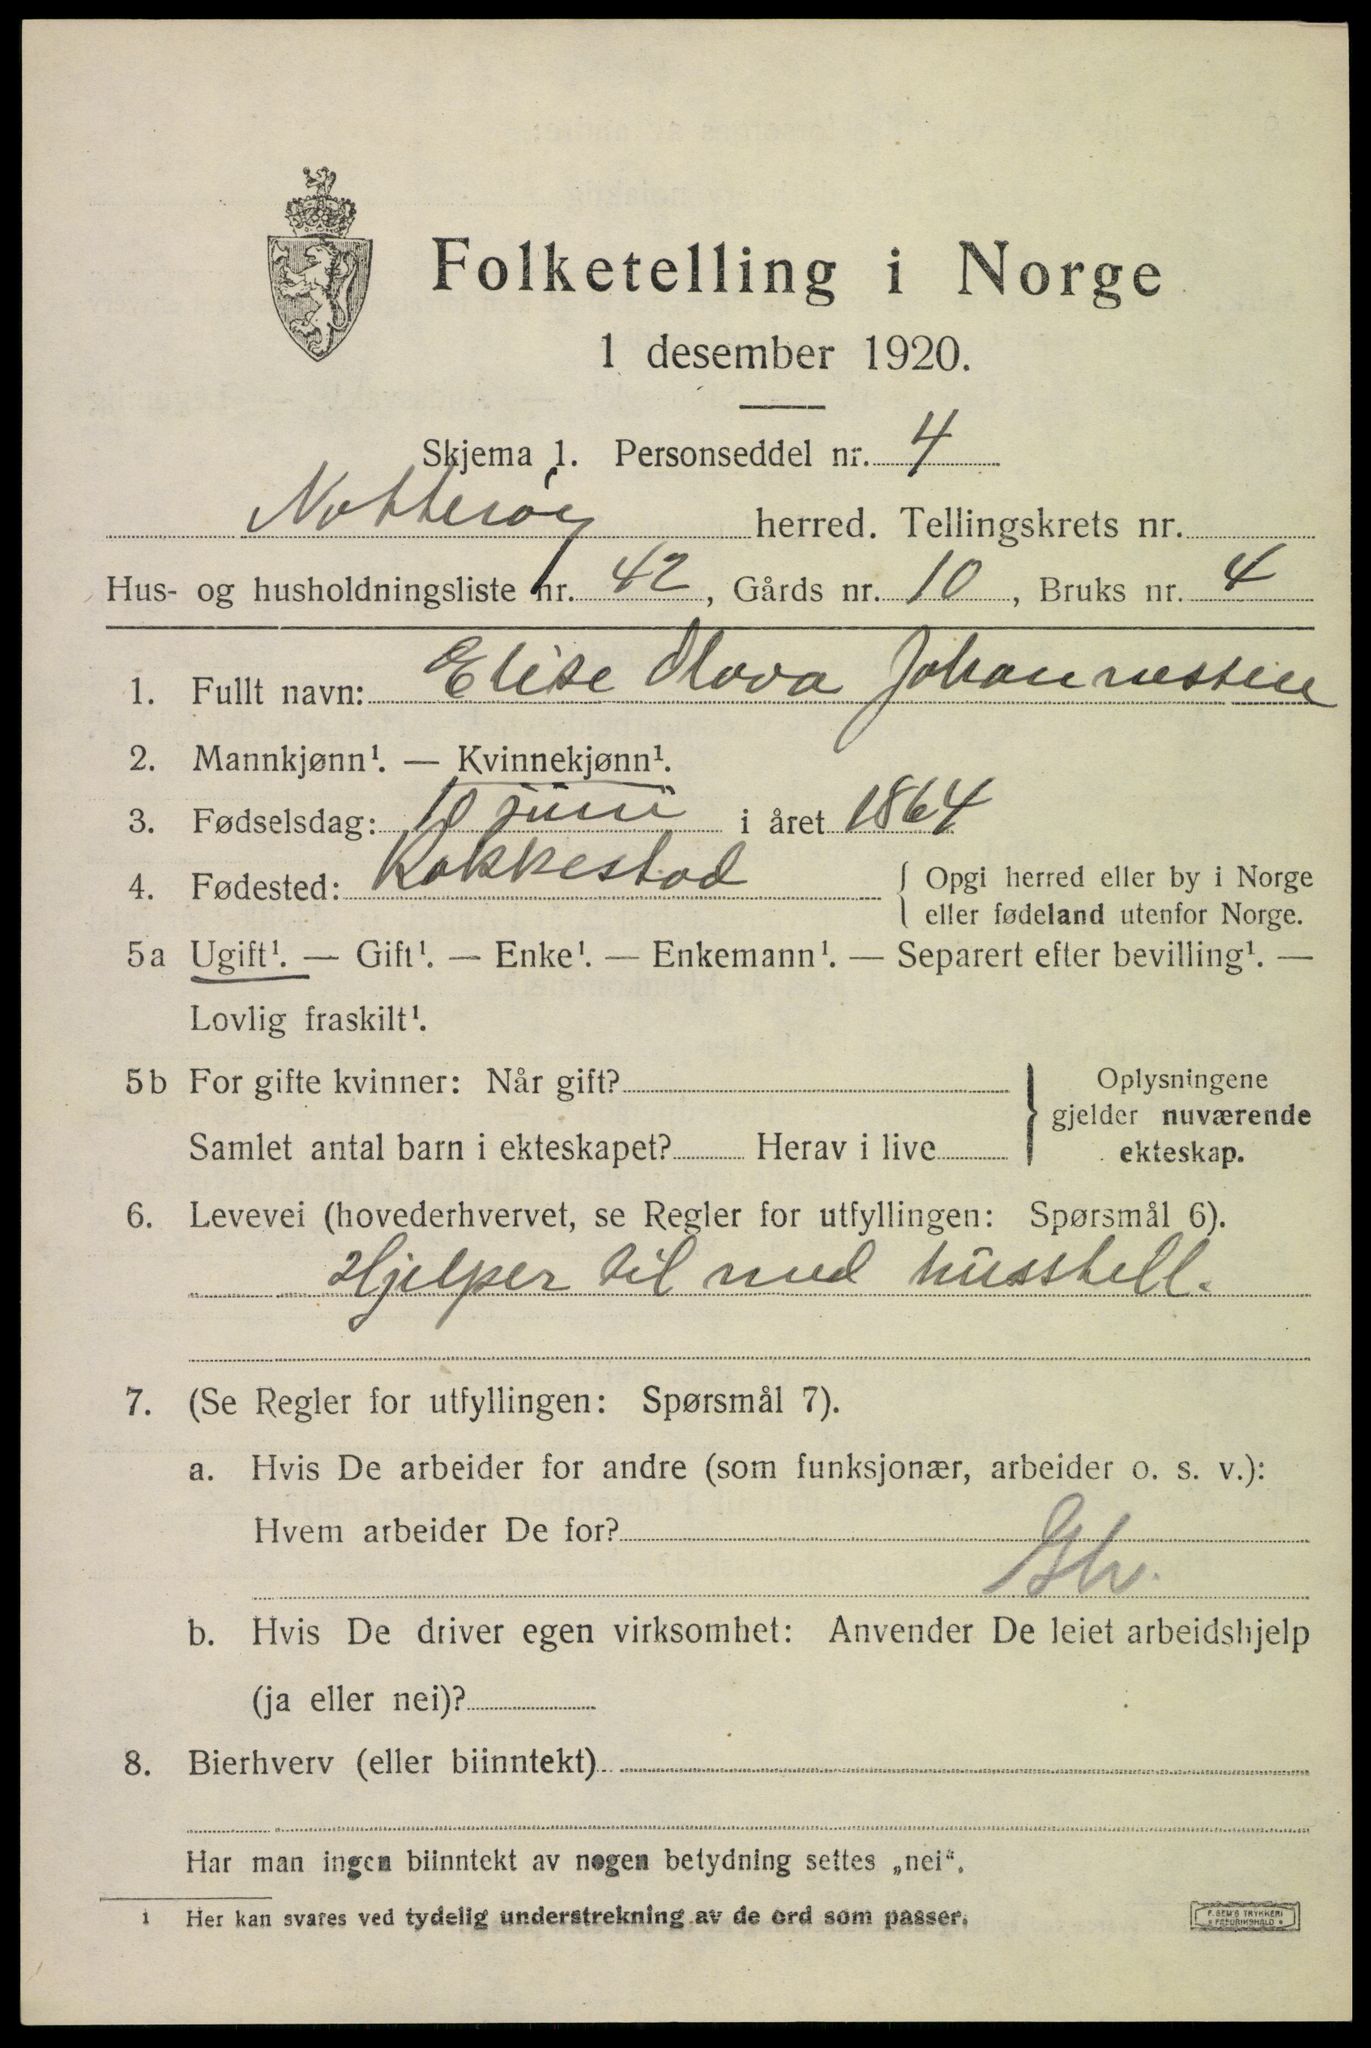 Folketelling i Norge
1 desember 1920.
Skjema 1. Personseddel nr. 4
Nøtterøy herred. Tellingskrets nr.
Hus- og husholdningsliste nr. 42, Gårds nr. 10, Bruks nr. 4
1. Fullt navn: Elise Johannessen
2. Mannkjønn¹. — Kvinnekjønn¹.
3. Fødselsdag: 10 juni i året 1864
4. Fødested: Rakkestad { Opgi herred eller by i Norge
eller fødeland utenfor Norge.
5a Ugift¹. — Gift¹. — Enke¹. — Enkemann¹. — Separert efter bevilling¹. —
Lovlig fraskilt¹.
5b For gifte kvinner: Når gift?
Samlet antal barn i ekteskapet? Herav i live
} Oplysningene
gjelder nuværende
ekteskap.
6. Levevei (hovederhvervet, se Regler for utfyllingen: Spørsmål 6).
Hjelper til med husstell.
7. (Se Regler for utfyllingen: Spørsmål 7).
a. Hvis De arbeider for andre (som funksjonær, arbeider o. s. v.):
Hvem arbeider De for?
b. Hvis De driver egen virksomhet: Anvender De leiet arbeidshjelp
(ja eller nei)?
8. Bierhverv (eller biinntekt)
Har man ingen biinntekt av nogen betydning settes „nei“.
1 Her kan svares ved tydelig understrekning av de ord som passer.
F. SEM'S TRYKKERI
FREDRIKSHALD